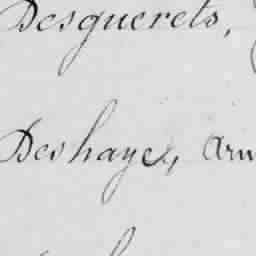 Desguerets,
Deshaye,